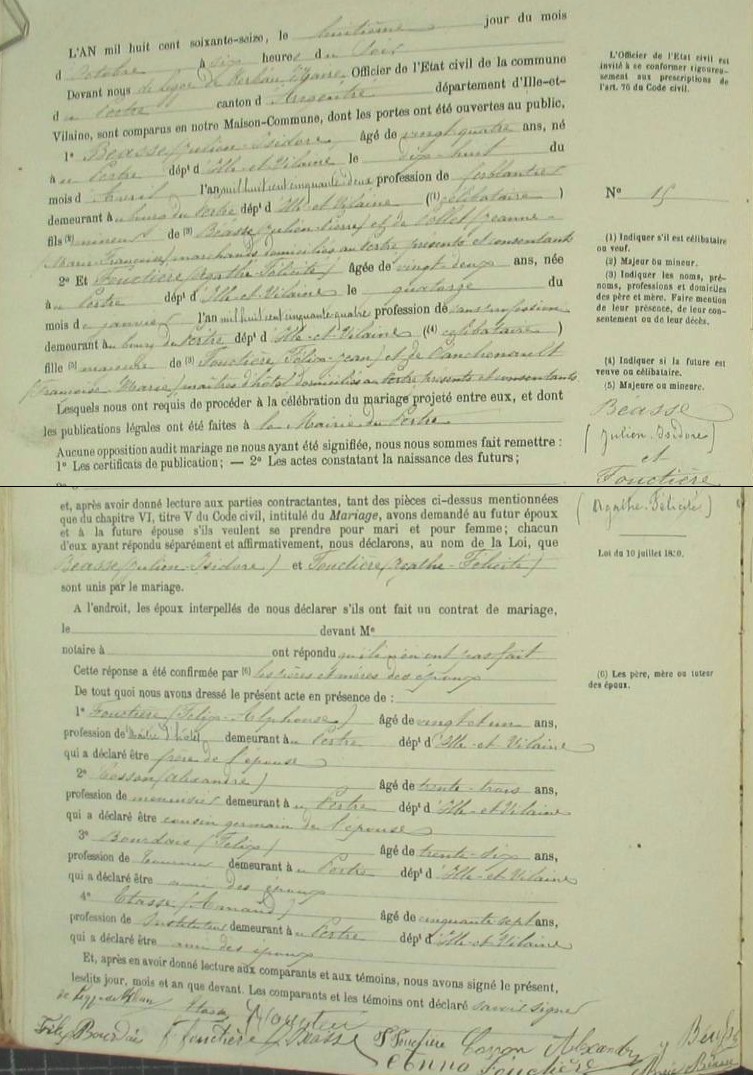 L'AN mil huit cent soixante-seize, le huitième jour du mois
d'Octobre à six heures du Soir
Devant nous Officier de l'Etat civil de la commune
du Pertre canton d'Argentré département d'Ille-et-
Vilaine, sont comparus en notre Maison-Commune, dont les portes ont été ouvertes au public,
1º Béasse (Julien-Isidore) âgé de vingt-quatre ans, né
au Pertre dépt d'Ille-et-Vilaine le dix-huit du
mois d'Avril l'an mil huit cent cinquante deux profession de ferblantier
demeurant au bourg du Pertre dépt d'Ille-et-Vilaine ((1) célibataire )
fils (2) mineur de (3) Béasse (Julien-Pierre) et de Collet (Jeanne-
Marie-Françoise) marchands domiciliés au Pertre présents et consentants
2º Et Fouctière (Agathe-Félicité) âgée de vingt-deux ans, née
au Pertre dépt d'Ille-et-Vilaine le quatorze du
mois de janvier l'an mil huit cent cinquante quatre profession de sans profession
demeurant au bourg du Pertre dépt d'Ille-et-Vilaine ((4) célibataire )
fille (5) majeure de (3) Fouctière (Félix-Jean) et de
(Françoise-Marie) maîtres d'hôtel domiciliés au Pertre présents et consentants
Lesquels nous ont requis de procéder à la célébration du mariage projeté entre eux, et dont
les publications légales ont été faites à la Mairie du Pertre
Aucune opposition audit mariage ne nous ayant été signifiée, nous nous sommes fait remettre :
1º Les certificats de publication; — 2º Les actes constatant la naissance des futurs;
L'Officier de l'Etat civil est
invité à se conformer rigoureu-
sement aux prescriptions de
l'art. 76 du Code civil.
Nº 15
(1) Indiquer s'il est célibataire
ou veuf.
(2) Majeur ou mineur.
(3) Indiquer les noms, pré-
noms, professions et domiciles
des père et mère. Faire mention
de leur présence, de leur con-
sentement ou de leur décès.
(4) Indiquer si la future est
veuve ou célibataire.
(5) Majeure ou mineure.
Béasse
(Julien-Isidore)
et
Fouctière
(Agathe-Félicité)
et, après avoir donné lecture aux parties contractantes, tant des pièces ci-dessus mentionnées
que du chapitre VI, titre V du Code civil, intitulé du Mariage, avons demandé au futur époux
et à la future épouse s'ils veulent se prendre pour mari et pour femme; chacun
d'eux ayant répondu séparément et affirmativement, nous déclarons, au nom de la Loi, que
Béasse (Julien-Isidore) et Fouctière (Agathe-Félicité)
sont unis par le mariage.
A l'endroit, les époux interpellés de nous déclarer s'ils ont fait un contrat de mariage,
le devant Me
notaire à ont répondu qu'ils n'en ont pas fait
Cette réponse a été confirmée par (6) les pères et mères des époux
De tout quoi nous avons dressé le présent acte en présence de :
1º Fouctière (Félix-Alphonse) âgé de vingt et un ans,
profession de Maître d'hôtel demeurant au Pertre dépt d'Ille-et-Vilaine
qui a déclaré être frère de l'épouse
2º (Alexandre) âgé de trente-trois ans,
profession de menuisier demeurant au Pertre dépt d'Ille-et-Vilaine
qui a déclaré être cousin germain de l'épouse
3º Bourdais (Félix) âgé de trente-six ans,
profession de demeurant au Pertre dépt d'Ille-et-Vilaine
qui a déclaré être ami des époux
4º Etasse (Armand) âgé de cinquante sept ans,
profession de Instituteur demeurant au Pertre dépt d'Ille-et-Vilaine
qui a déclaré être ami des époux
Et, après en avoir donné lecture aux comparants et aux témoins, nous avons signé le présent,
lesdits jour, mois et an que devant. Les comparants et les témoins ont déclaré savoir signer
Loi du 10 juillet 1850.
(6) Les père, mère ou tuteur
des époux.
Etasse
Félix Bourdais F fouctière J Béasse Alexandre
Anna Fouctière Marie